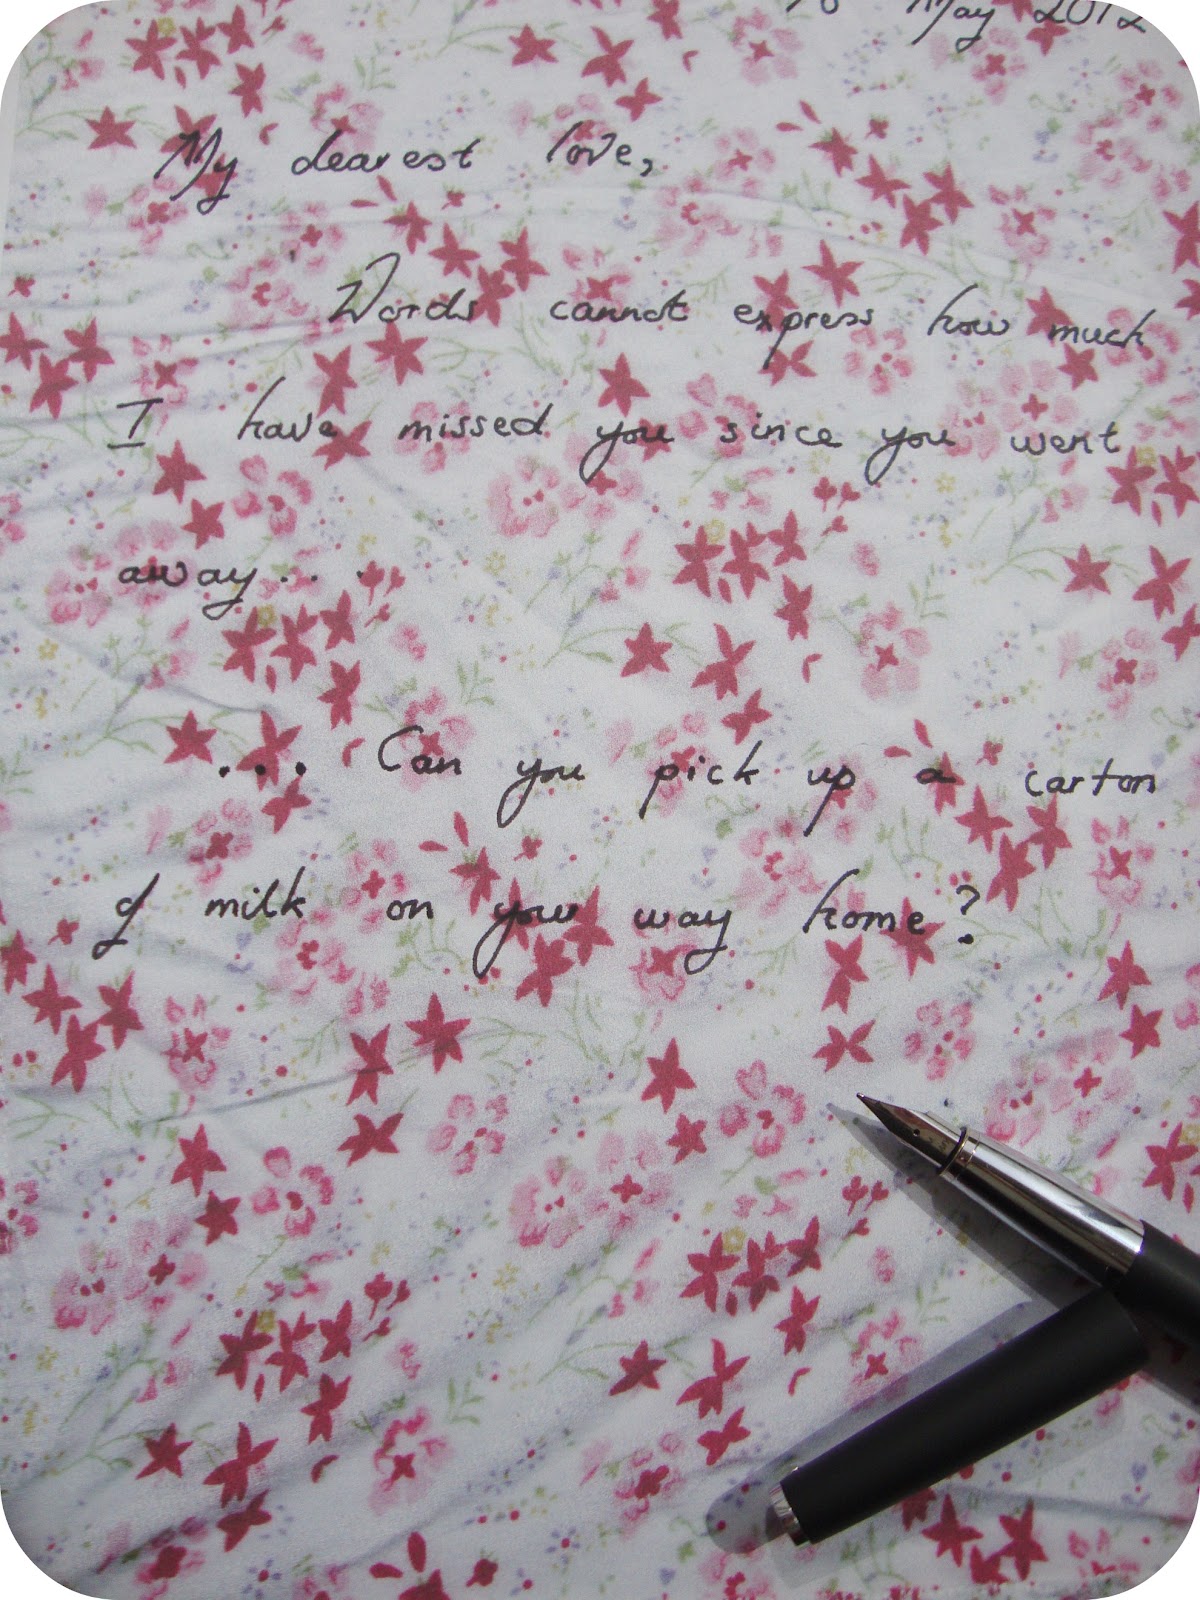 May 2012
My dearest love,
Words cannot express how much
I have missed you since you went
away...
... Can you pick up a carton
of milk on your way home?